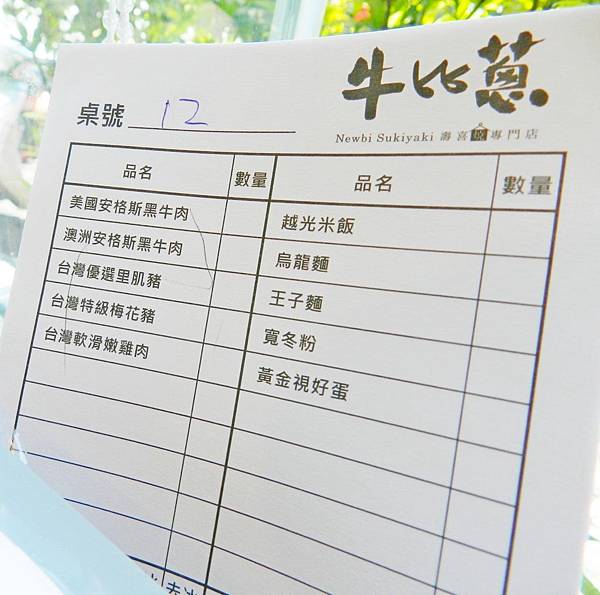 牛比蔥
Newbi Sukiyaki 壽喜燒專門店
桌號 12
品名 數量 品名 數量
美國安格斯黑牛肉 越光米飯
澳洲安格斯黑牛肉 烏龍麵
台灣優選里肌豬 王子麵
台灣特級梅花豬 寬冬粉
台灣軟滑嫩雞肉 黃金視好蛋